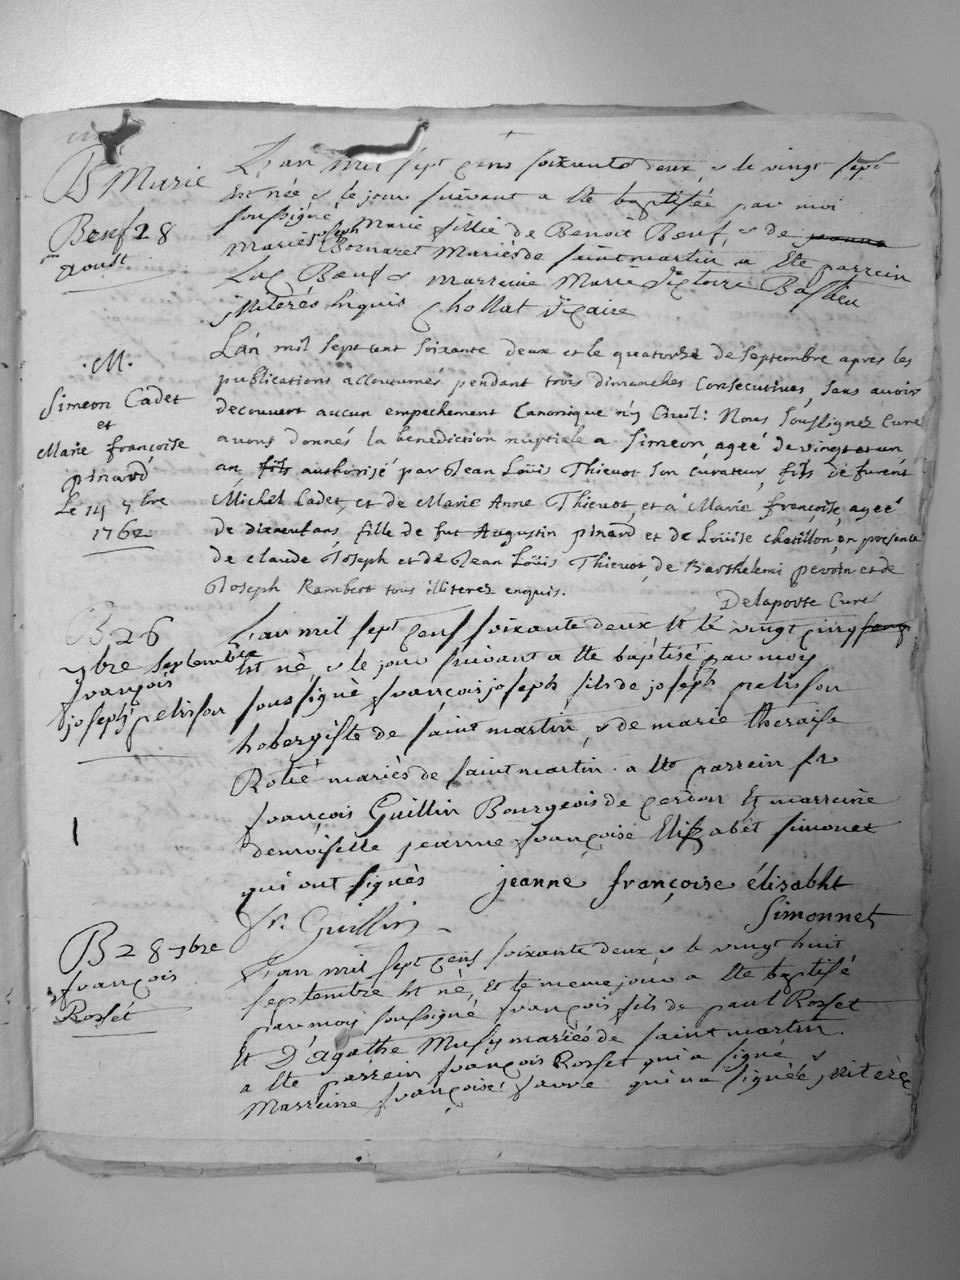 B Marie
Bœuf 28
aoust
L'an mil sept cens soixante deux, & le vingt sept
Est née & le jour suivant a Ete baptisée par moi
soussigné, Marie fillie de Benoit Bœuf, & de jeanne
Marie joseph Bornaret Mariés de saint martin a Ete parrein
Luc Bœuf & marreine Marie Victoire Bastieu
jlliterés Enquis Chollat Vicaire
.M.
Simeon Cadet
et
Marie françoise
pinard
Le 14 7bre
1762
L'an mil Sept cent Soixante deux et le quatorze de Septembre apres les
publications accoutumés pendant trois dimanches Consecutives, sans avoir
decouvert aucun empechement Canonique n'y Civil: Nous Soussignez Curé
avons donnés la benediction nuptiale a Simeon, ageé de vingt et un
an fils authorisé par Jean Loüis Thievot Son Curateur, fils de furent
Michel Cadet, et de Marie Anne Thievot, et a Marie françoise, ageé
de dixneuf ans, fille de fut Augustin pinard et de Loüise chatillon, en presence
de claude Joseph et de Jean Loüis Thievot, de Barthelemi pevoin et de
Joseph Rambert tous illiterez enquis.
Delaporte Curé
B 26
7bre Septembre
françois
joseph pelisson
L'an mil sept Cens soixante deux Et le vingt cinq
Est né & le jour suivant a Ete baptisé par moy
soussigné françois joseph fils de joseph pelisson
hobergiste de saint martin, & de marie theraise
Rotié mariés de saint martin. a Ete parrein sr
françois Guillin Bourgeois de cerdon Et marreine
demoiselle jeanne françoise Elizabet simonet
qui ont signés jeanne françoise élisabht
Simonnet
fr. Guillin
B 28 7bre
françois
Rosset
L'an mil sept cens soixante deux & le vingt huit
septembre Est né, Et le meme jour a Ete baptisé
par moy soussigné françois fils de paul Rosset
Et D'agathe Musy mariés de saint martin.
a Ete parrein françois Rosset qui a signé &
Marreine françoise favre qui n'a signée, jlliteré